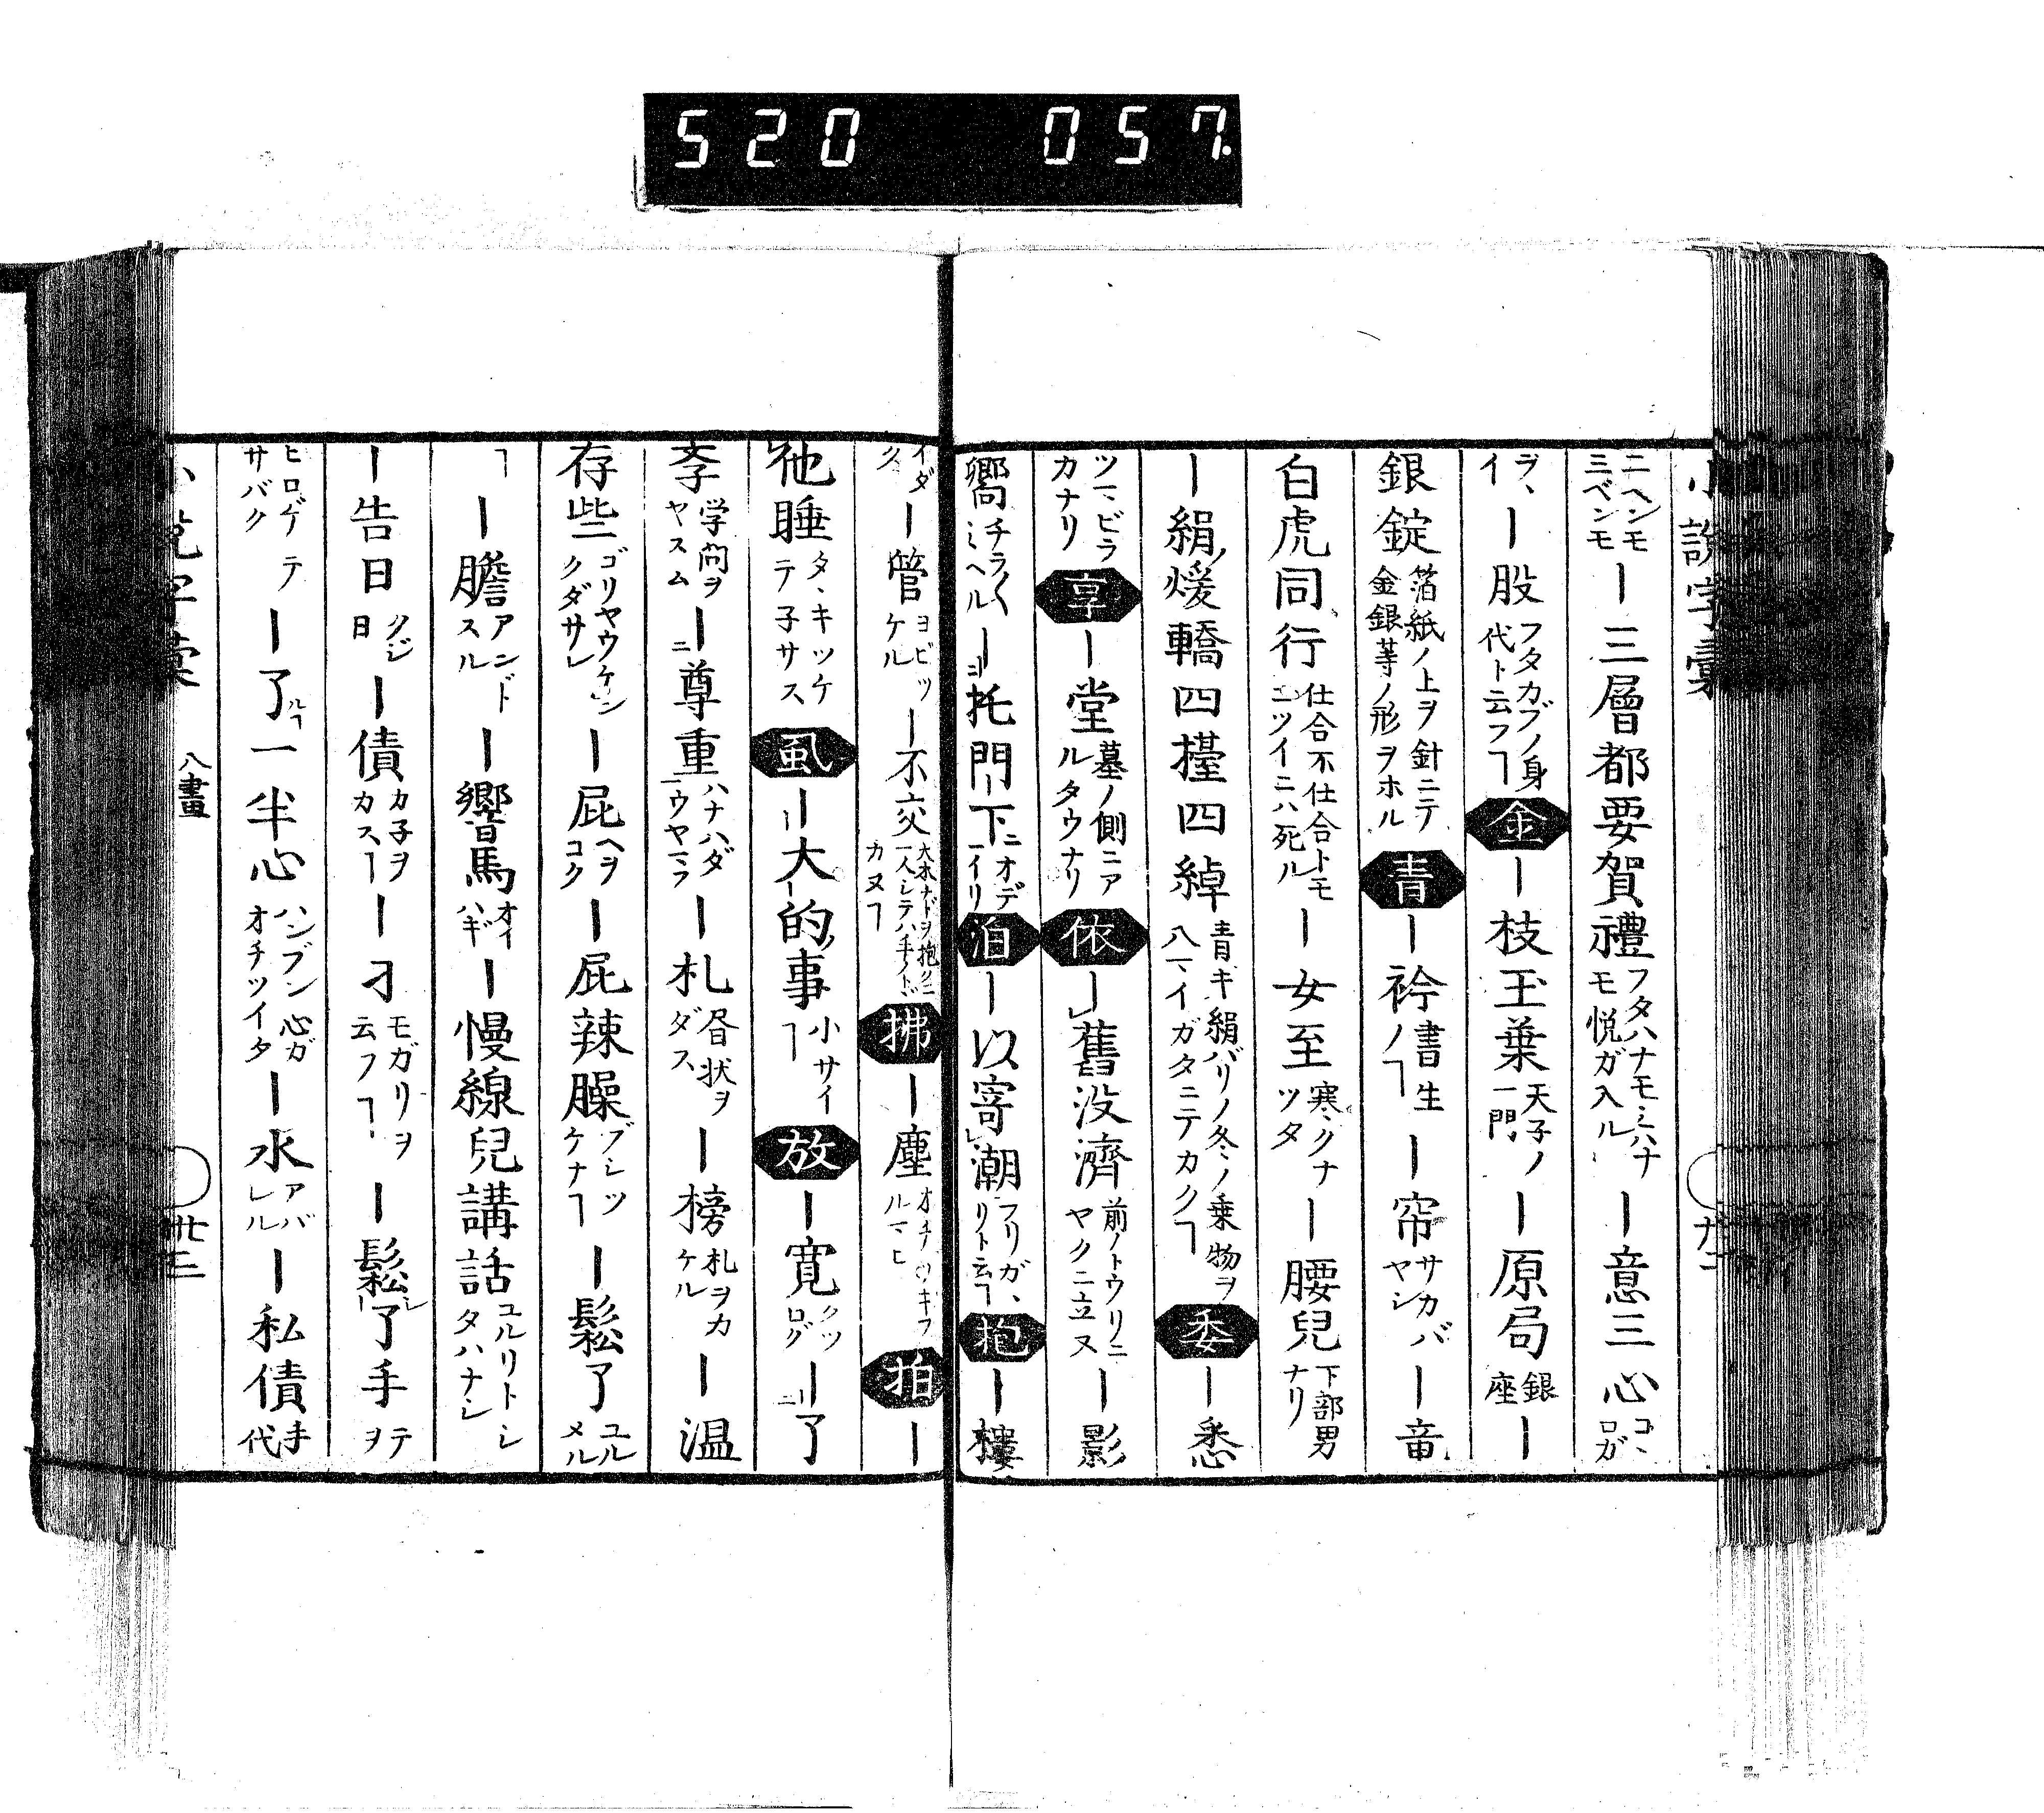 520 057.
小説字彙
ニヘンモ三ベンモ ー三層都要賀禮 フタハナモミハナモ悦ガ入ル ー意三心 コヽロガ
ヲヽイ ー股 フタカブノ身代ト云フヿ 金 ー枝玉葉 天子ノ一門 ー原局 銀座 ー
銀錠 箔紙ノ上ヲ針ニテ金銀等ノ形ヲホル 青 ー衿 書生ノヿ ー帘 サカバヤシ ー竜
白虎同行 仕合不仕合トモニツイニハ死ル ー女至 寒クナツタ ー腰兒 下部男ナリ
ー絹煖轎四擡四綽 青キ絹バリノ冬ノ乗物ヲ八マイガタニテカクヿ 委 ー悉
ツマビラカナリ 享 ー堂 墓ノ側ニアルタウナリ 依 ー舊没濟 前ノトウリニヤクニ立ヌ ー影
嚮 チラ〱ミヘル ー托門下 ニオデイリ 泊 ー以寄潮 フリガヽリト云ヿ 抱 ー摟
イダク ー管 ヨビツケル ー不交 大木ナドヲ抱クニ一人シテハ手ノトドカヌヿ 拂 ー塵 オチツキフルマヒ 拍 ー
他睡 タヽキツケテ子サス 虱 ー大的事 小サイヿ 放 ー寛 クツログ ー了
斈 学問ヲヤスム ー尊重 ハナハダウヤマフ ー札 昼状ヲダス ー榜 札ヲカケル ー温
存些 ゴリヤウケンクダサレ ー屁 ヘヲコク ー屁辣臊 ブシツケナヿ ー鬆了 ユルメル
ヿ ー膽 アンドスル ー響馬 オイハギ ー慢線兒講話 ユルリトシタハナシ
ー告日 クジ日 ー債 カ子ヲカスヿ ー刁 モガリヲ云フヿ ー鬆了手 テヲ
ヒロゲテサバク ー了 ルヿ 一半心 ハンブン心ガオチツイタ ー水 アバレル ー私債 手代
小説字彙 八畫 廿三